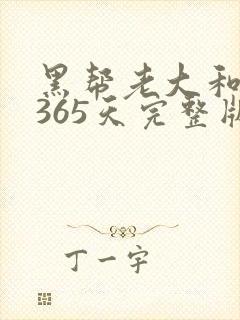 黑帮老大和
365天完整版
丁一宇